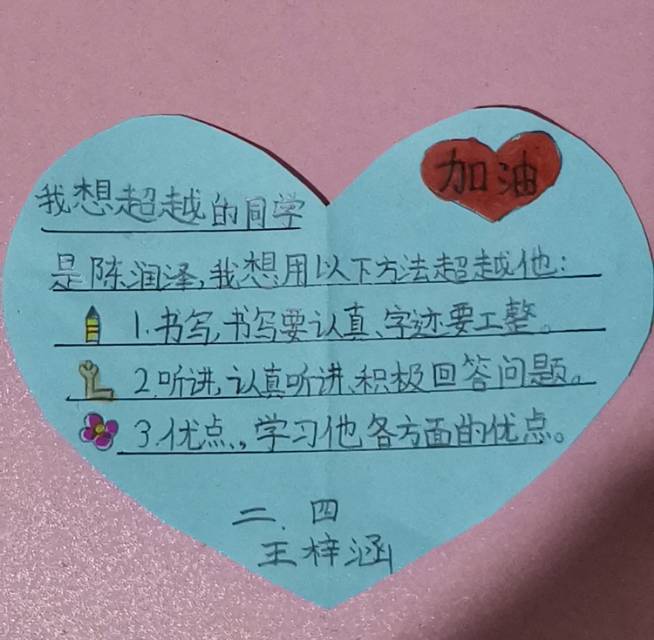 加油
我想超越的同学
是陈润泽,我想用以下方法超越他:
1.书写,书写要认真、字迹要工整。
2.听讲,认真听讲、积极回答问题。
3.优点,学习他各方面的优点。
二.四
王梓涵